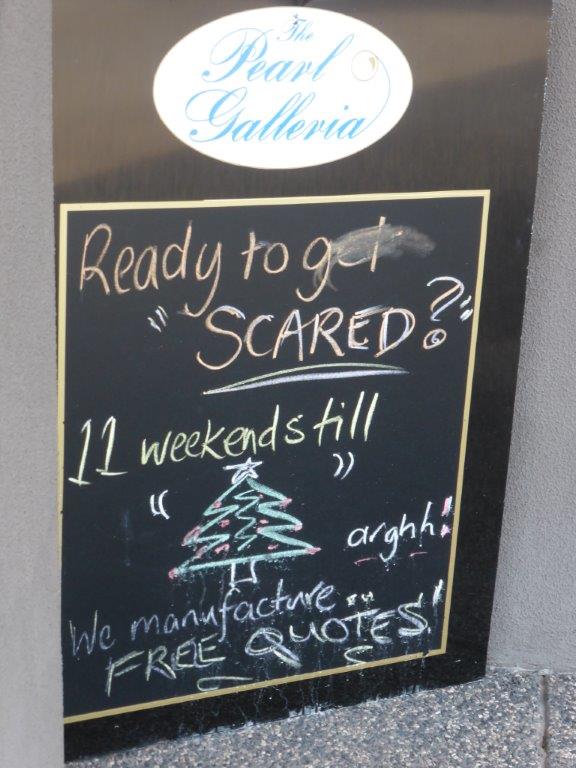 The
Pearl
Galleria
Ready to get
"SCARED?"
11 weekends till
" "
arghh!
We manufacture
FREE QUOTES!